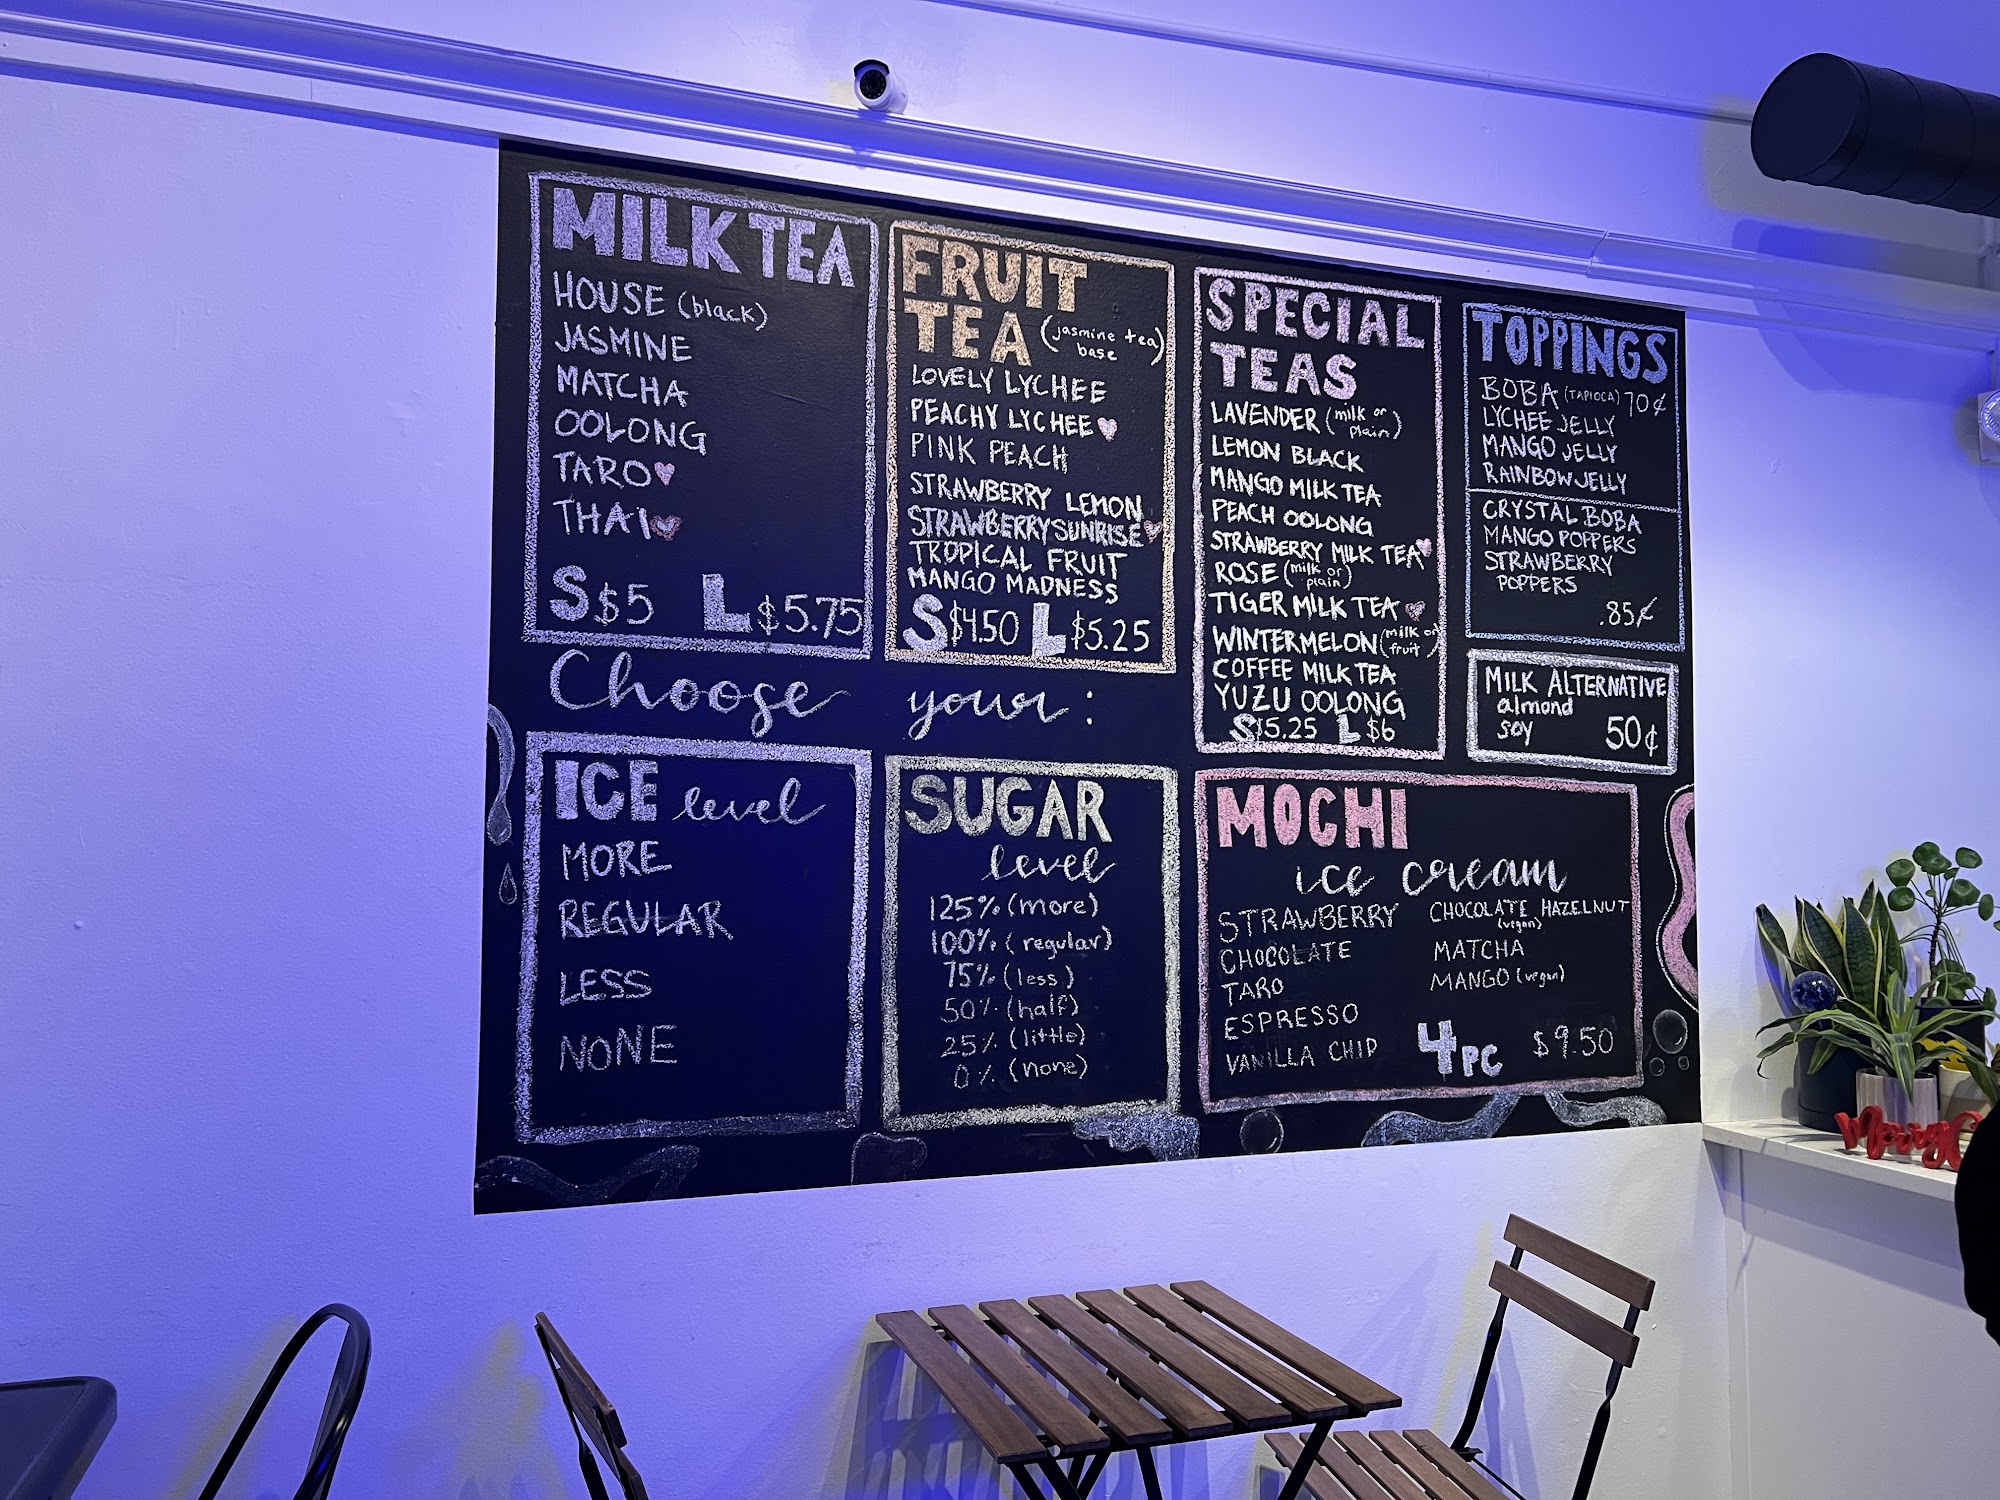 MILK TEA
HOUSE (black)
JASMINE
MATCHA
OOLONG
TARO
THAI
S $5 L $5.75
FRUIT
TEA (jasmine tea base)
LOVELY LYCHEE
PEACHY LYCHEE
PINK PEACH
STRAWBERRY LEMON
STRAWBERRY SUNRISE
TROPICAL FRUIT
MANGO MADNESS
S $4.50 L $5.25
SPECIAL
TEAS
LAVENDER (milk or plain)
LEMON BLACK
MANGO MILK TEA
PEACH OOLONG
STRAWBERRY MILK TEA
ROSE (milk or plain)
TIGER MILK TEA
WINTERMELON (milk or fruit)
COFFEE MILK TEA
YUZU OOLONG
S $5.25 L $6
TOPPINGS
BOBA (TAPIOCA) 70¢
LYCHEE JELLY
MANGO JELLY
RAINBOW JELLY
CRYSTAL BOBA
MANGO POPPERS
STRAWBERRY
POPPERS
.85¢
MILK ALTERNATIVE
almond
soy 50¢
Choose your:
ICE level
MORE
REGULAR
LESS
NONE
SUGAR
level
125% (more)
100% (regular)
75% (less)
50% (half)
25% (little)
0% (none)
MOCHI
ice cream
STRAWBERRY
CHOCOLATE
TARO
ESPRESSO
VANILLA CHIP
CHOCOLATE HAZELNUT
(vegan)
MATCHA
MANGO (vegan)
4PC $9.50
Merry